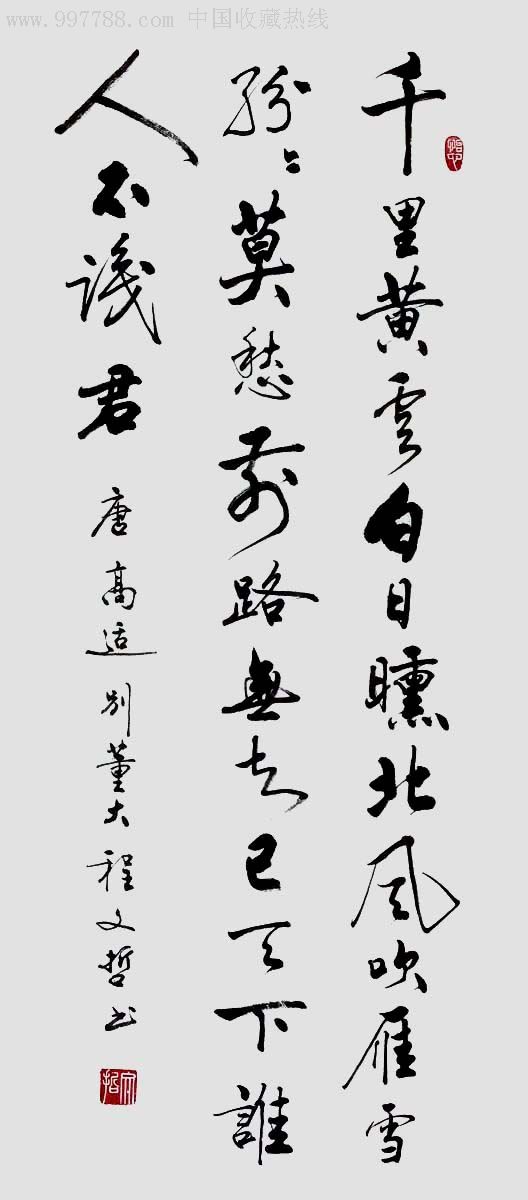 www.997788.com 中国收藏热线
千里黄雲白日曛北风吹雁雪
紛紛莫愁前路無知己天下誰
人不識君 唐高适别董大程文哲书